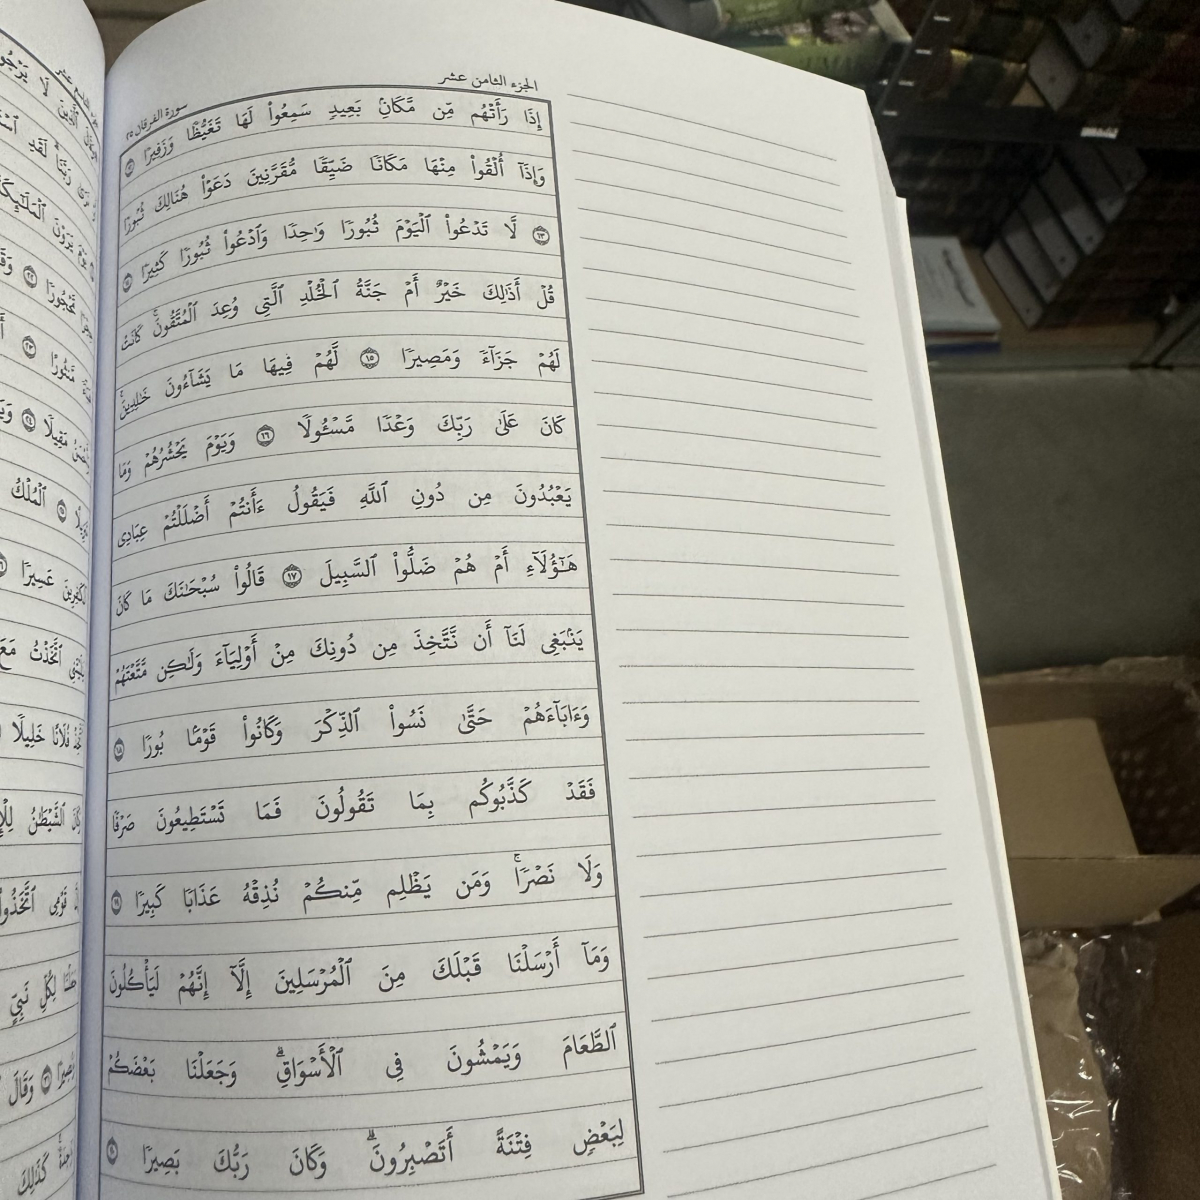 الجزء الثامن عشر
سورة الفرقان ٢٥
إِذَا رَأَتْهُم مِّن مَّكَانٍۭ بَعِيدٍ سَمِعُوا۟ لَهَا تَغَيُّظًا وَزَفِيرًا ١٢
وَإِذَآ أُلْقُوا۟ مِنْهَا مَكَانًا ضَيِّقًا مُّقَرَّنِينَ دَعَوْا۟ هُنَالِكَ ثُبُورًا
١٣ لَّا تَدْعُوا۟ ٱلْيَوْمَ ثُبُورًا وَٰحِدًا وَٱدْعُوا۟ ثُبُورًا كَثِيرًا ١٤
قُلْ أَذَٰلِكَ خَيْرٌ أَمْ جَنَّةُ ٱلْخُلْدِ ٱلَّتِى وُعِدَ ٱلْمُتَّقُونَۚ كَانَتْ
لَهُمْ جَزَآءً وَمَصِيرًا ١٥ لَّهُمْ فِيهَا مَا يَشَآءُونَ خَٰلِدِينَۚ
كَانَ عَلَىٰ رَبِّكَ وَعْدًا مَّسْـُٔولًا ١٦ وَيَوْمَ يَحْشُرُهُمْ وَمَا
يَعْبُدُونَ مِن دُونِ ٱللَّهِ فَيَقُولُ ءَأَنتُمْ أَضْلَلْتُمْ عِبَادِى
هَٰٓؤُلَآءِ أَمْ هُمْ ضَلُّوا۟ ٱلسَّبِيلَ ١٧ قَالُوا۟ سُبْحَٰنَكَ مَا كَانَ
يَنۢبَغِى لَنَآ أَن نَّتَّخِذَ مِن دُونِكَ مِنْ أَوْلِيَآءَ وَلَٰكِن مَّتَّعْتَهُمْ
وَءَابَآءَهُمْ حَتَّىٰ نَسُوا۟ ٱلذِّكْرَ وَكَانُوا۟ قَوْمًۢا بُورًا ١٨
فَقَدْ كَذَّبُوكُم بِمَا تَقُولُونَ فَمَا تَسْتَطِيعُونَ صَرْفًا
وَلَا نَصْرًاۚ وَمَن يَظْلِم مِّنكُمْ نُذِقْهُ عَذَابًا كَبِيرًا ١٩
وَمَآ أَرْسَلْنَا قَبْلَكَ مِنَ ٱلْمُرْسَلِينَ إِلَّآ إِنَّهُمْ لَيَأْكُلُونَ
ٱلطَّعَامَ وَيَمْشُونَ فِى ٱلْأَسْوَاقِۗ وَجَعَلْنَا بَعْضَكُمْ
لِبَعْضٍ فِتْنَةً أَتَصْبِرُونَۗ وَكَانَ رَبُّكَ بَصِيرًا ٢٠
لَا يَرْجُو
لَقَدِ
يَرَوْنَ ٱلْمَلَٰٓئِكَةَ
مَّحْجُورًا ٢٢
٢٣
مَقِيلًا ٢٤
٢٥ ٱلْمُلْكُ
عَسِيرًا
ٱتَّخَذْتُ مَعَ
فُلَانًا خَلِيلًا
ٱلشَّيْطَٰنُ
قَوْمِى ٱتَّخَذُوا۟
لِكُلِّ نَبِىٍّ
وَقَالَ
كَذَٰلِكَ